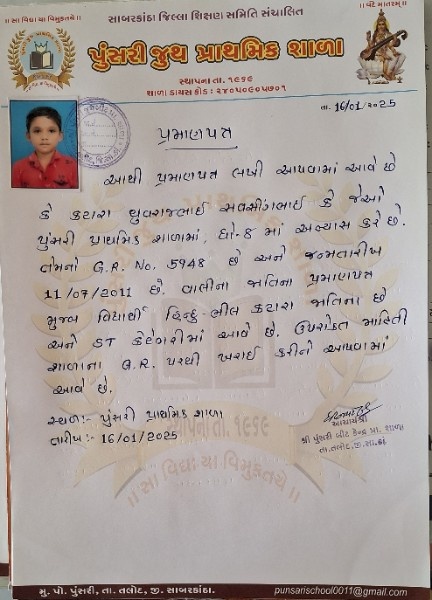 સાબરકાંઠા જિલ્લા શિક્ષણ સમિતિ સંચાલિત
॥ સા વિદ્યા યા વિમુક્તયે ॥
॥ વંદે માતરમ્ ॥
પુંસરી જુથ પ્રાથમિક શાળા
સ્થાપના તા. ૧૯૬૯
શાળા ડાયસ કોડ : ૨૪૦૫૦૯૦૫૭૦૧
તા. 16/01/૨૦25
પ્રમાણપત્ર
આથી પ્રમાણપત્ર લખી આપવામાં આવે છે
કે કટારા ધ્રુવરાજભાઈ સવસીંગભાઈ કે જેઓ
પુંસરી પ્રાથમિક શાળામાં, ધો-8 માં અભ્યાસ કરે છે.
તેમનો G.R. No. 5948 છે અને જન્મતારીખ
11/07/2011 છે. વાલીના જાતિના પ્રમાણપત્ર
મુજબ વિદ્યાર્થી હિન્દુ-ભીલ કટારા જાતિના છે
અને ST કેટેગરીમાં આવે છે. ઉપરોક્ત માહિતી
શાળાના G.R. પરથી ખરાઈ કરીને આપવામાં
આવે છે.
સ્થળ:- પુંસરી પ્રાથમિક શાળા
તારીખ:- 16/01/2025
આચાર્યશ્રી
શ્રી પુંસરી બીટ કેન્દ્ર પ્રા. શાળા
તા.તલોદ, જી.સા.કાં
સ્થાપના તા. ૧૯૬૯
॥ સા વિદ્યા યા વિમુક્તયે ॥
મુ. પો. પુંસરી, તા. તલોદ, જી. સાબરકાંઠા.
punsarischool0011@gmail.com